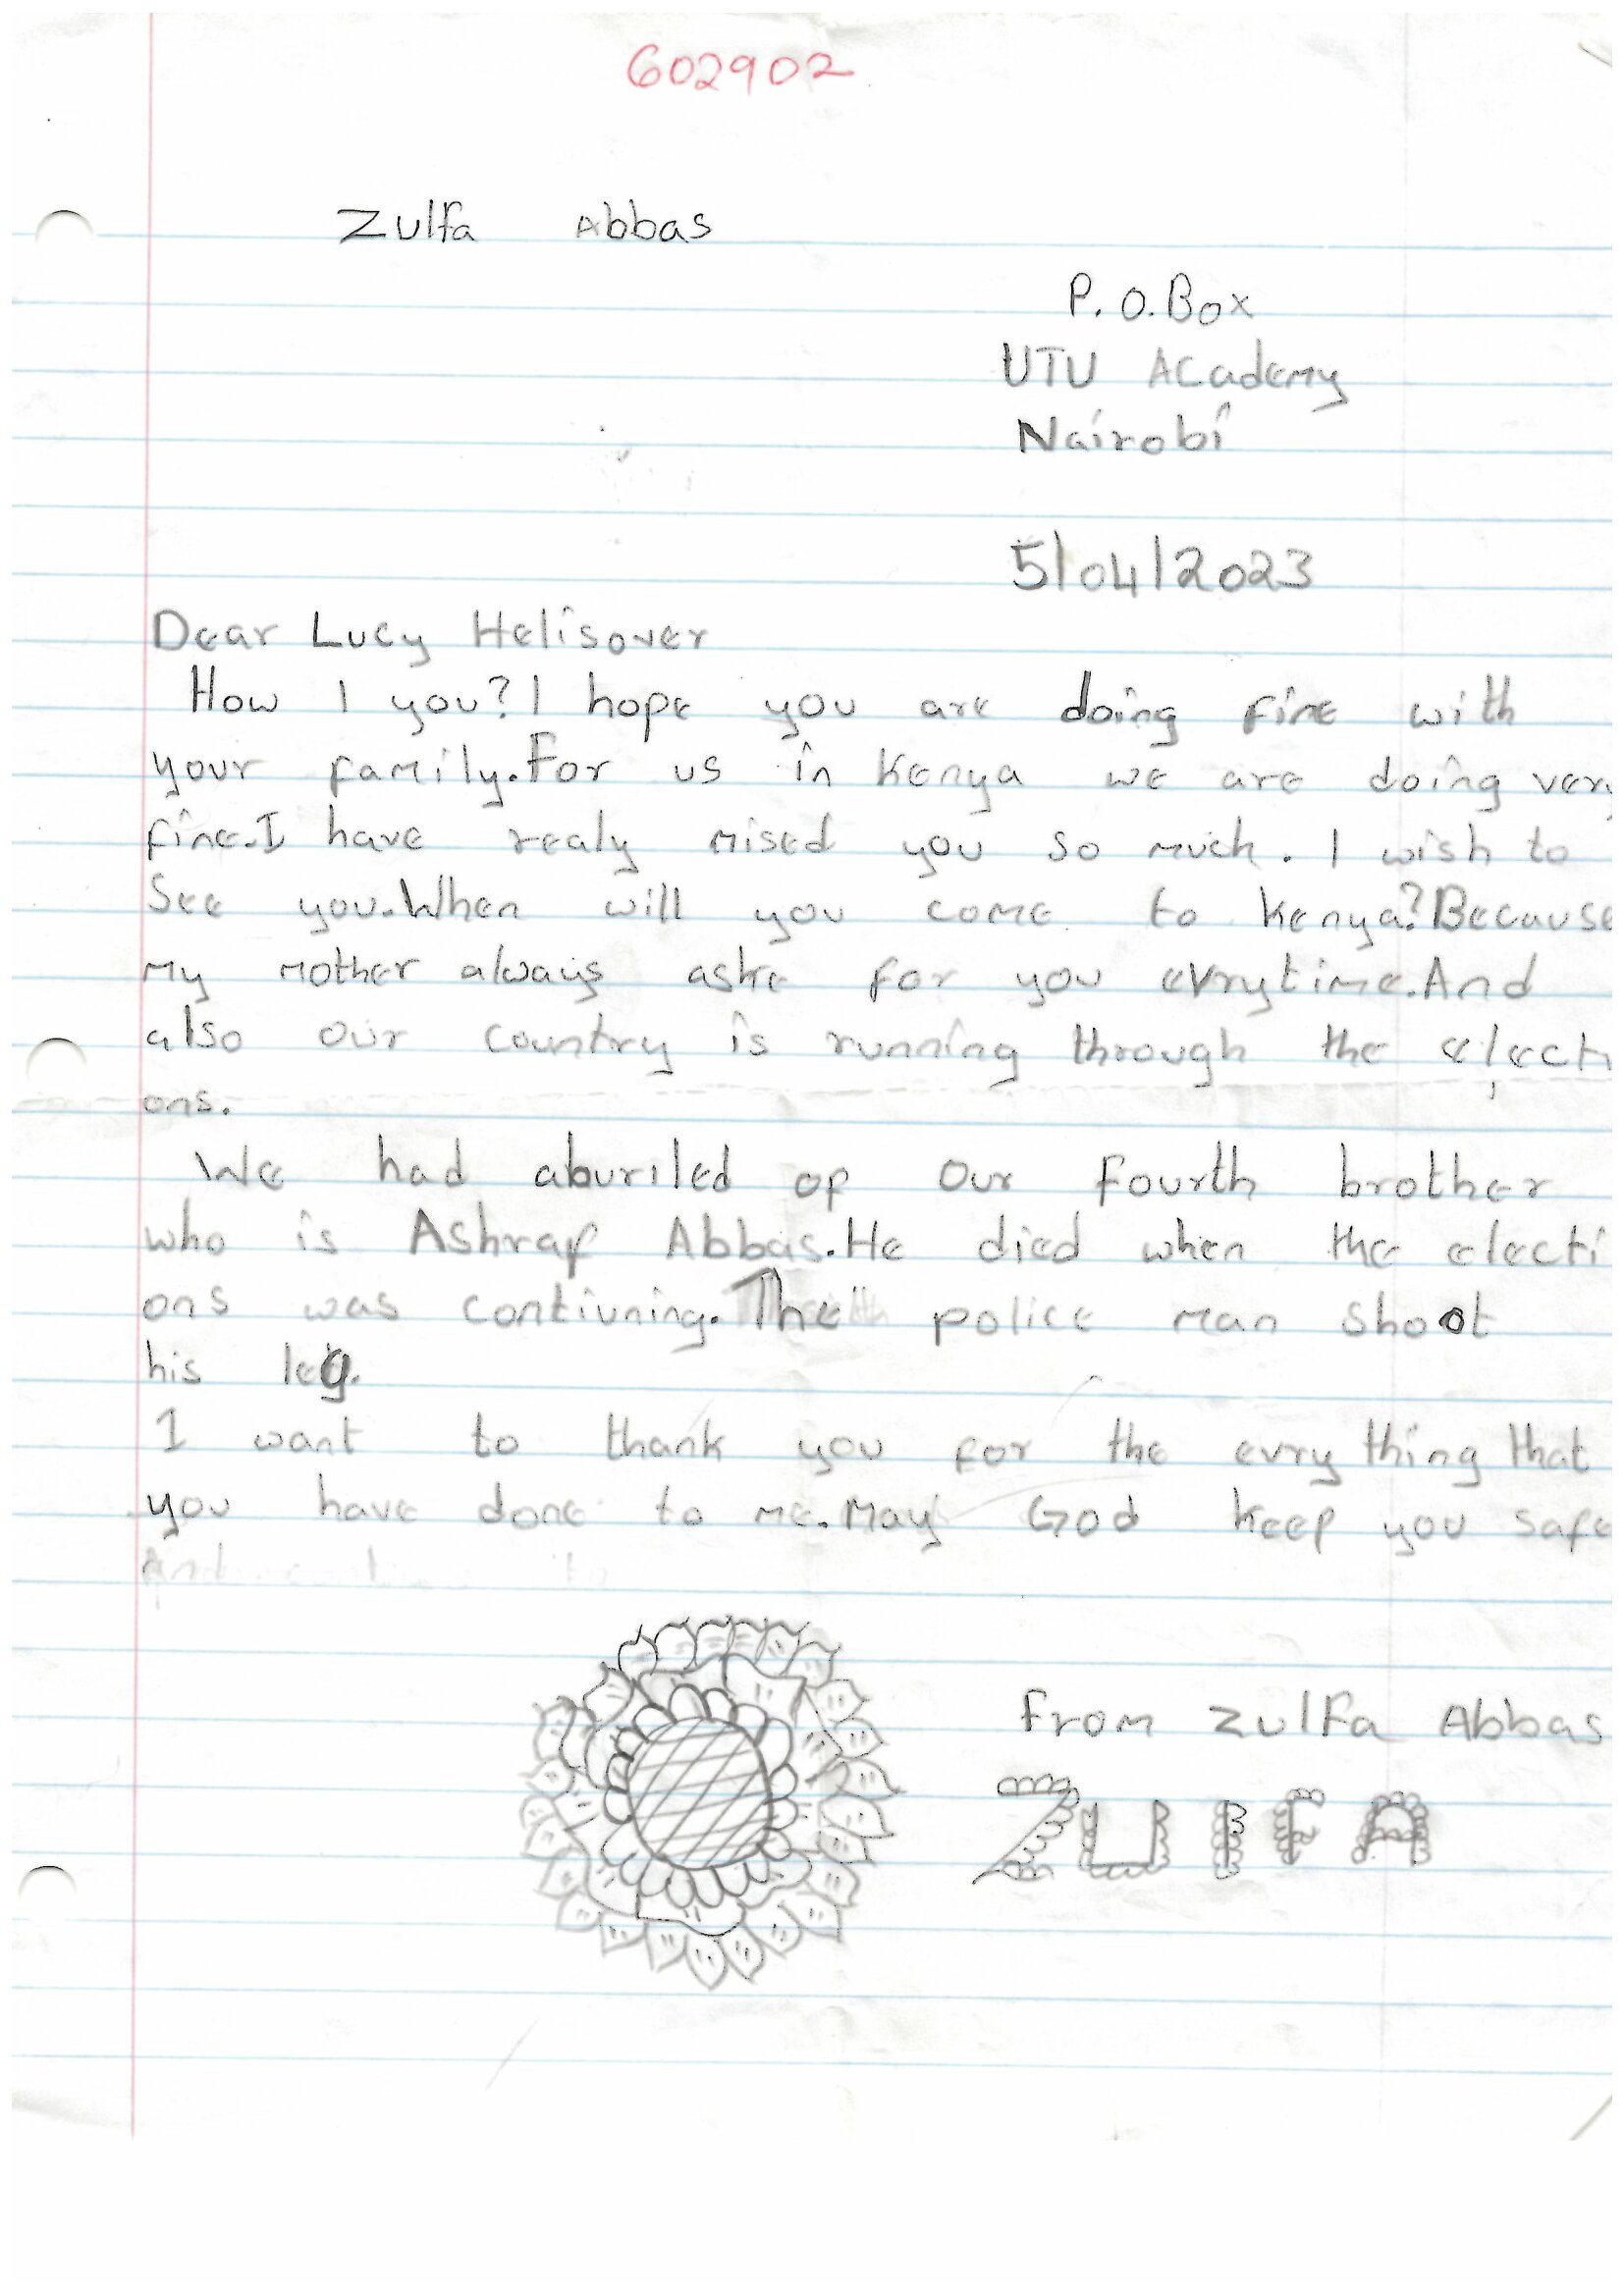 602902
Zulfa Abbas
P.O.Box
UTU ACademy
Nairobi
5/04/2023
Dear Lucy Helisover
How I you? I hope you are doing fine with
your family. For us in Kenya we are doing very
fine. I have realy mised you so much. I wish to
See you. When will you come to Kenya? Because
my mother always aske for you evrytime. And
also our country is running through the electi
ons.
We had aburiled of our fourth brother
who is Ashraf Abbas. He died when the electi
ons was contiuning. The police man shoot
his leg.
I want to thank you for the evry thing that
you have done to me. May God keep you safe
And
From Zulfa Abbas
ZUlFA